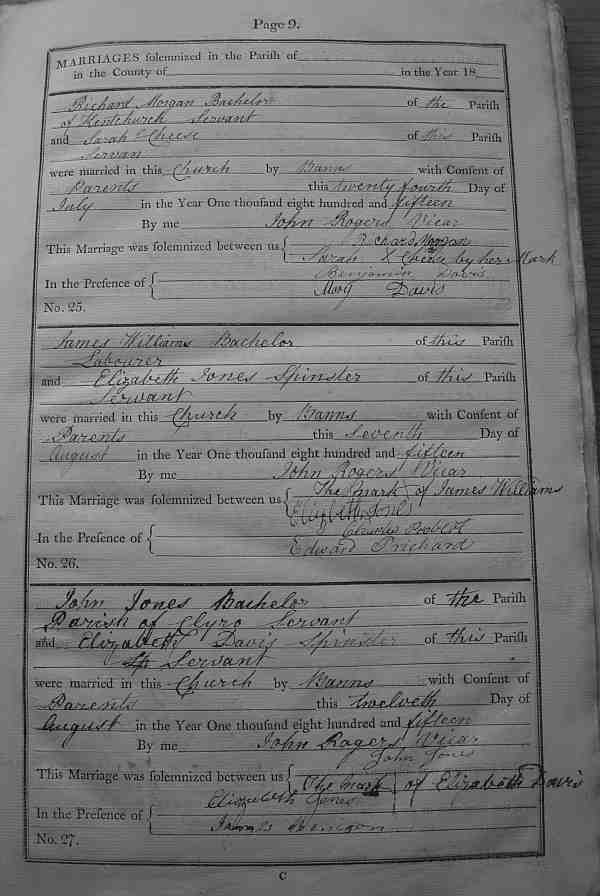 Page 9.
MARRIAGES solemnized in the Parish of
in the County of in the Year 18
Richard Morgan Bachelor of the Parish
of Kentchurch Servant
and Sarah Cheese of this Parish
Servan
were married in this Church by Banns with Consent of
Parents this twenty fourth Day of
July in the Year One thousand eight hundred and fifteen
By me John Rogers Vicar
This Marriage was solemnized between us { Richard Morgan
Sarah X Cheese by her Mark
In the Presence of { Benjamin Davis
Mary Davis
No. 25.
James Williams Bachelor of this Parish
Labourer
and Elizabeth Jones Spinster of this Parish
Servant
were married in this Church by Banns with Consent of
Parents this Seventh Day of
August in the Year One thousand eight hundred and fifteen
By me John Rogers Vicar
This Marriage was solemnized between us { The mark of James Williams
Elizabeth Jones
In the Presence of { Charles
Edward Prichard
No. 26.
John Jones Bachelor of the Parish
Parish of Clyro Servant
and Elizabeth Davis Spinster of this Parish
Sp Servant
were married in this Church by Banns with Consent of
Parents this twelveth Day of
August in the Year One thousand eight hundred and fifteen
By me John Rogers Vicar
John Jones
This Marriage was solemnized between us { The mark of Elizabeth Davis
Elizabeth Jones
In the Presence of { James
No. 27.
C